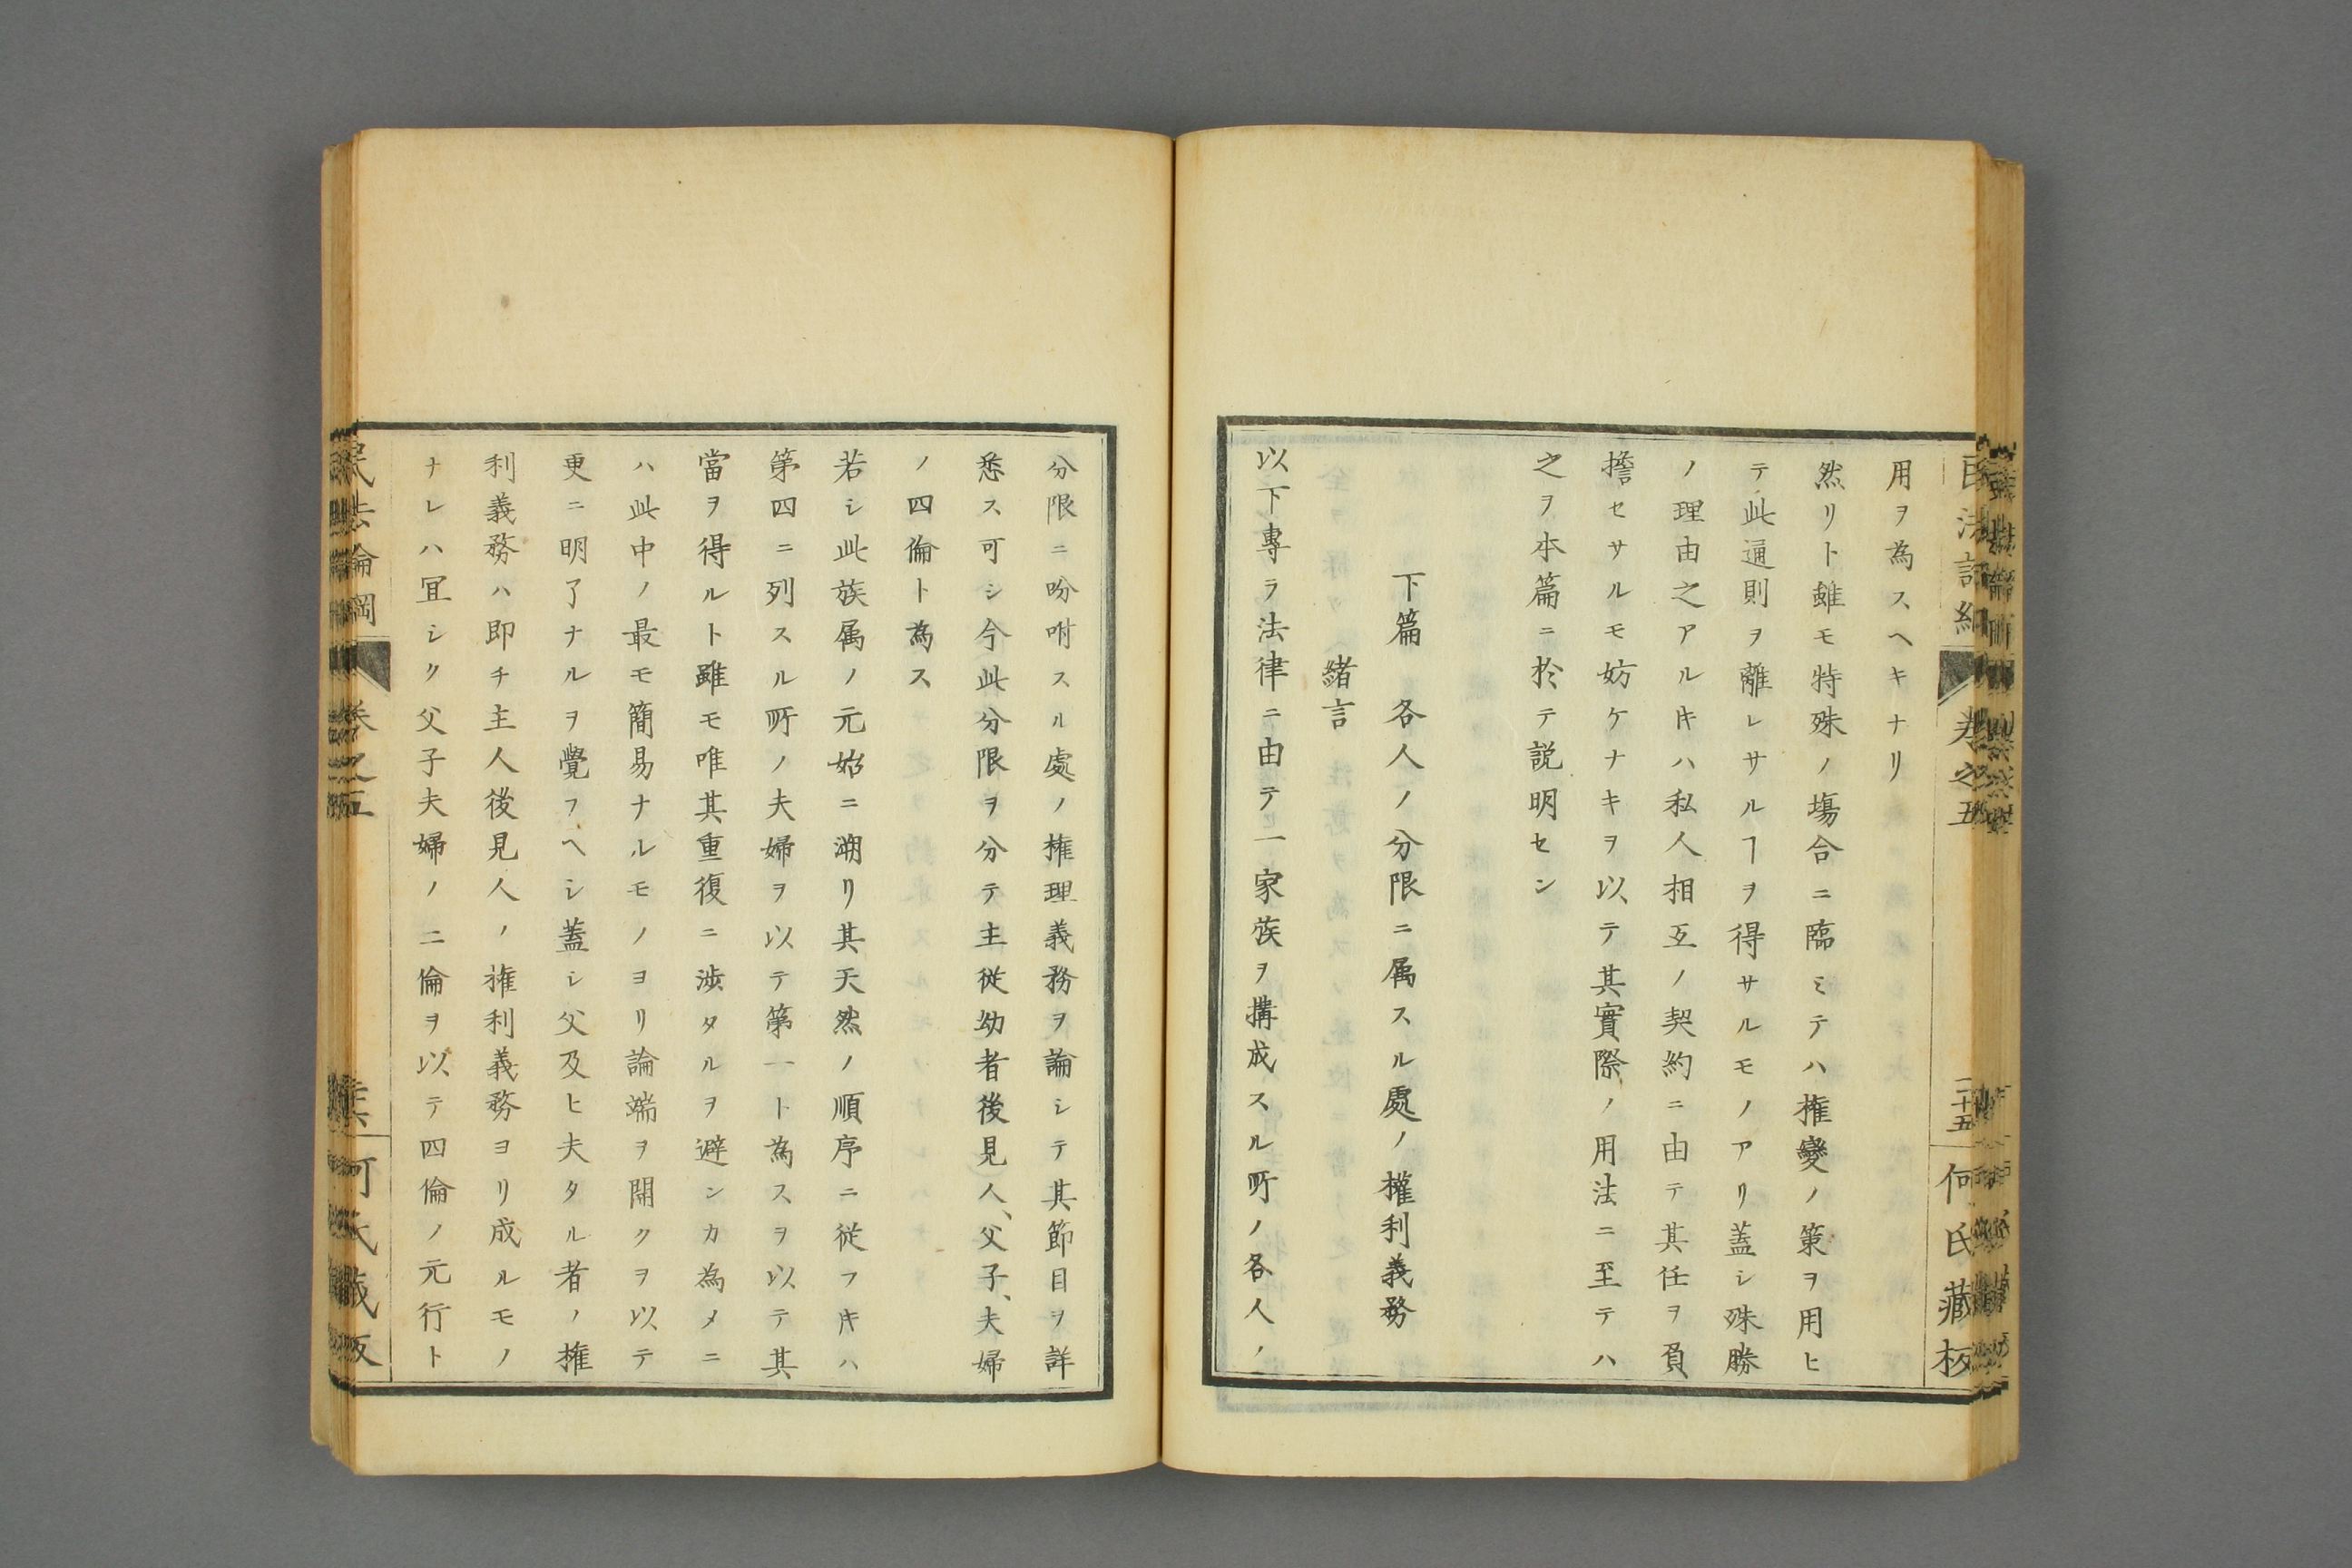 用ヲ為スヘキナリ
然リト雖モ特殊ノ塲合ニ臨ミテハ権變ノ策ヲ用ヒ
テ此通則ヲ離レサルヿヲ得サルモノアリ蓋シ殊勝
ノ理由之アルキハ私人相互ノ契約ニ由テ其任ヲ負
擔セサルモ妨ケナキヲ以テ其實際ノ用法ニ至テハ
之ヲ本篇ニ於テ説明セン
下篇 各人ノ分限ニ属スル處ノ權利義務
緒言
以下專ラ法律ニ由テ一家族ヲ搆成スル所ノ各人ノ
卷之五
二十五
何氏藏板
分限ニ吩咐スル處ノ権理義務ヲ論シテ其節目ヲ詳
悉ス可シ今此分限ヲ分テ主従幼者後見人、父子、夫婦
ノ四倫ト為ス
若シ此族属ノ元始ニ溯リ其天然ノ順序ニ従フキハ
第四ニ列スル所ノ夫婦ヲ以テ第一ト為スヲ以テ其
當ヲ得ルト雖モ唯其重復ニ渉タルヲ避ンカ為メニ
ハ此中ノ最モ簡易ナルモノヨリ論端ヲ開クヲ以テ
更ニ明了ナルヲ覺フヘシ蓋シ父及ヒ夫タル者ノ権
利義務ハ即チ主人後見人ノ権利義務ヨリ成ルモノ
ナレハ冝シク父子夫婦ノ二倫ヲ以テ四倫ノ元行ト
民法論綱
卷之五
何氏藏板